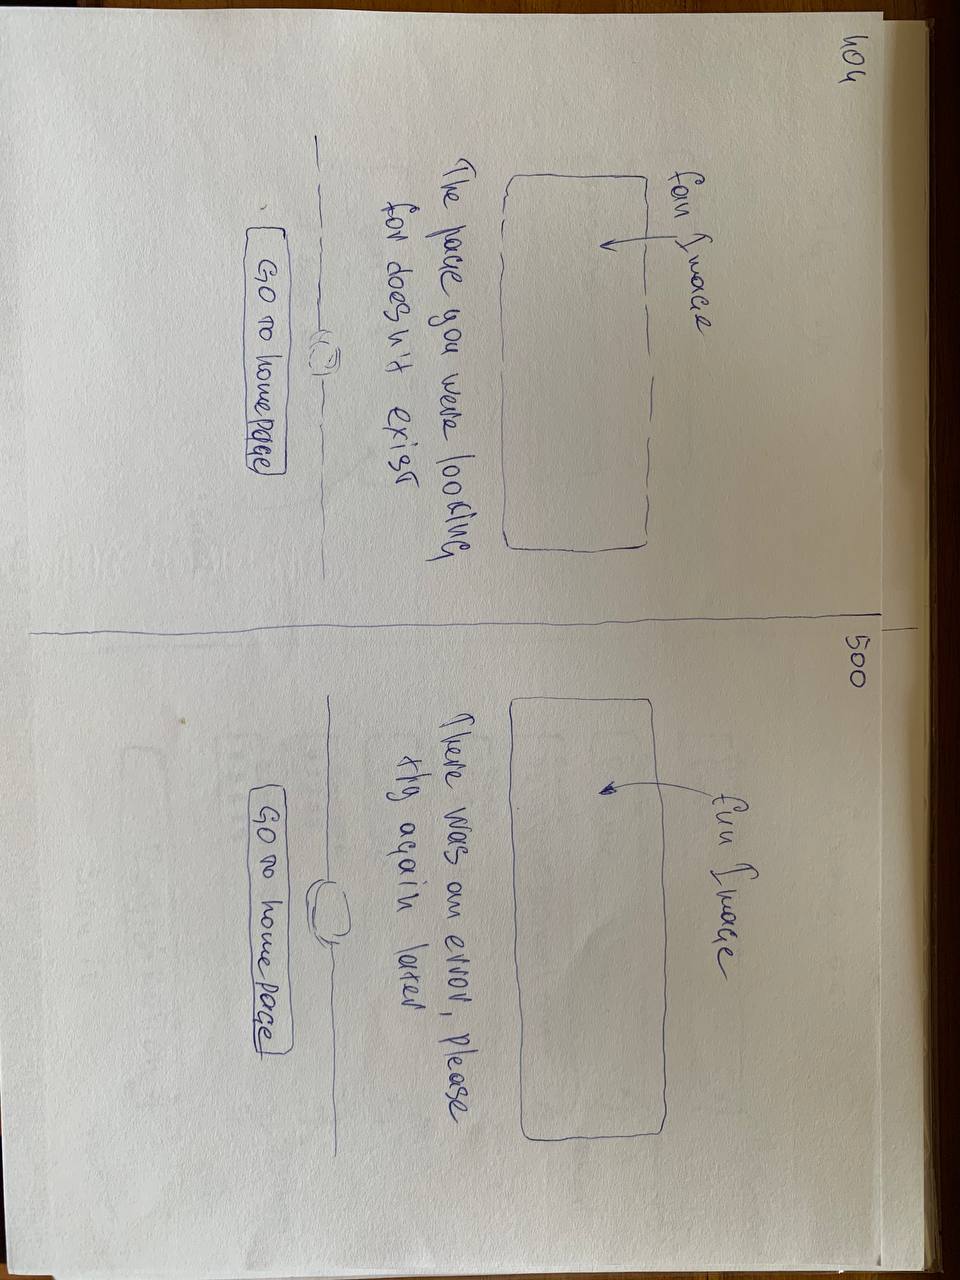 404
fan Image
The page you were looking
for doesn't exist
Go to homepage
500
fun Image
There was an error, please
try again later
Go to homepage